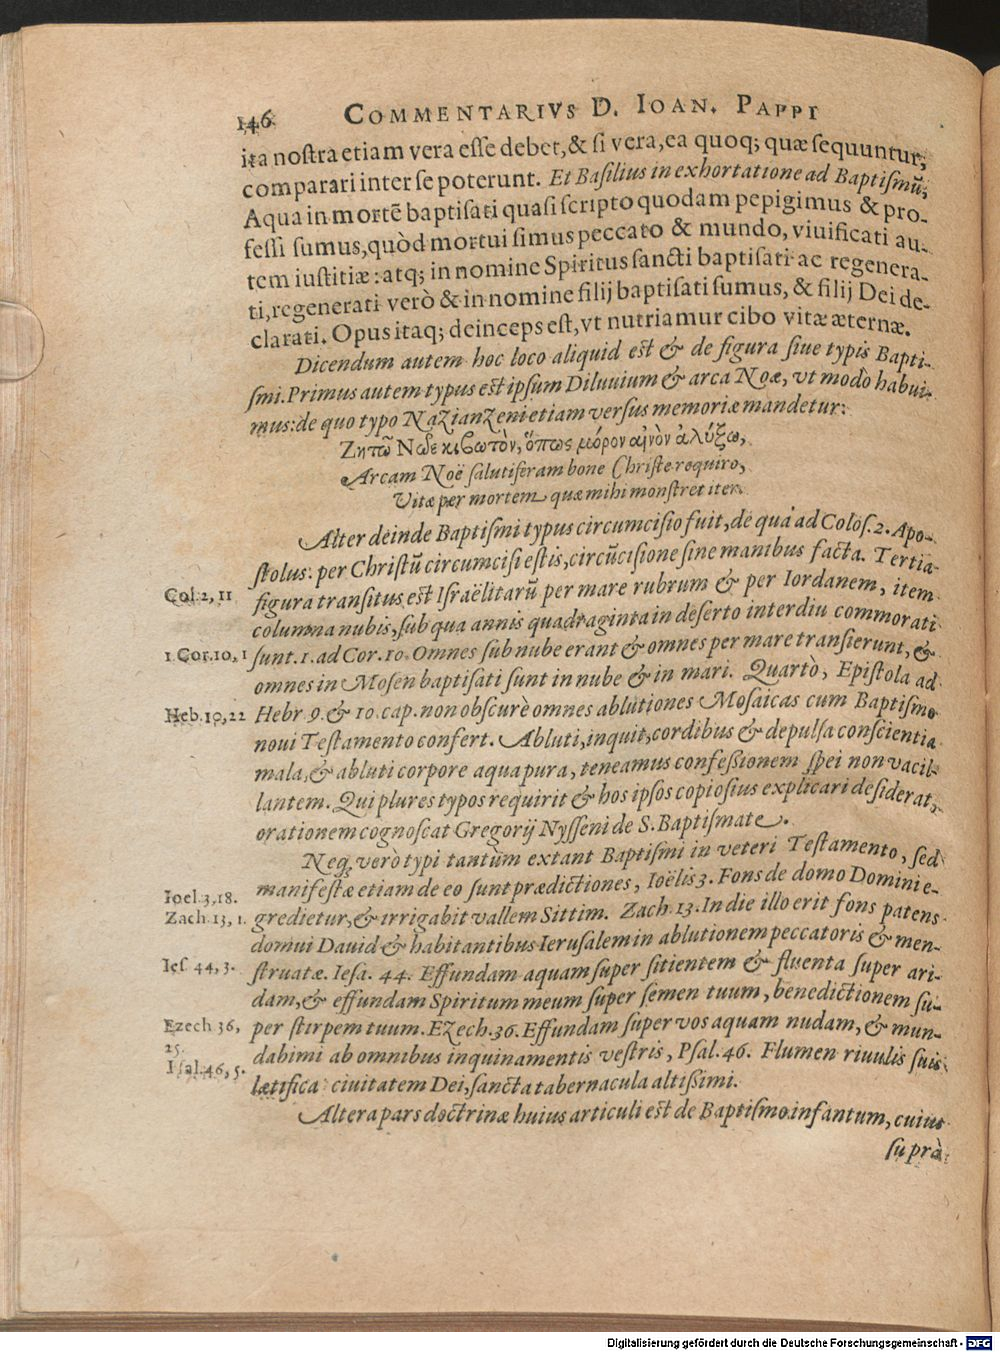 146 COMMENTARIVS D. IOAN. PAPPI
ita nostra etiam vera esse debet, & si vera, ea quoq; quæ sequuntur,
comparari inter se poterunt. Et Basilius in exhortatione ad Baptismū;
Aqua in mortē baptisati quasi scripto quodam pepigimus & pro-
fessi sumus, quòd mortui simus peccato & mundo, viuificati au-
tem iustitiæ: atq; in nomine Spiritus sancti baptisati ac regenera-
ti, regenerati verò & in nomine filij baptisati sumus, & filij Dei de-
clarati. Opus itaq; deinceps est, vt nutriamur cibo vitæ æternæ.
Dicendum autem hoc loco aliquid est & de figura siue typis Bapti-
smi. Primus autem typus est ipsum Diluuium & arca Noæ, vt modò habui-
mus: de quo typo Nazianzeni etiam versus memoriæ mandetur:
Ζητῶ Νῶε κιβωτὸν, ὅπως μόρον αἰνὸν ἀλύξω,
Arcam Noë salutiferam bone Christe requiro,
Vitæ per mortem quæ mihi monstret iter.
Alter deinde Baptismi typus circumcisio fuit, de qua ad Colos. 2. Apo-
stolus: per Christū circumcisi estis, circūcisione sine manibus facta. Tertia
Col. 2, 11 figura transitus est Israëlitarū per mare rubrum & per Iordanem, item
columna nubis, sub qua annis quadraginta in deserto interdiu commorati
1. Cor. 10, 1 sunt. 1. ad Cor. 10. Omnes sub nube erant & omnes per mare transierunt, &
omnes in Mosen baptisati sunt in nube & in mari. Quartò, Epistola ad
Heb. 10, 22 Hebr 9. & 10. cap. non obscurè omnes ablutiones Mosaicas cum Baptismo
noui Testamento confert. Abluti, inquit, cordibus & depulsa conscientia
mala, & abluti corpore aqua pura, teneamus confessionem spei non vacil-
lantem. Qui plures typos requirit & hos ipsos copiosius explicari desiderat,
orationem cognoscat Gregorij Nysseni de S. Baptismate.
Neq; verò typi tantùm extant Baptismi in veteri Testamento, sed
manifestæ etiam de eo sunt prædictiones, Ioëlis 3. Fons de domo Domini e-
Ioel. 3, 18.
Zach. 13, 1. gredietur, & irrigabit vallem Sittim. Zach. 13. In die illo erit fons patens
domui Dauid & habitantibus Ierusalem in ablutionem peccatoris & men-
Ies. 44, 3. struatæ. Iesa. 44. Effundam aquam super sitientem & fluenta super ari-
dam, & effundam Spiritum meum super semen tuum, benedictionem su-
Ezech 36, 25. per stirpem tuum. Ezech. 36. Effundam super vos aquam nudam, & mun-
dabimi ab omnibus inquinamentis vestris, Psal. 46. Flumen riuulis suis
Psal. 46, 5. lætifica ciuitatem Dei, sancta tabernacula altissimi.
Altera pars doctrinæ huius articuli est de Baptismo infantum, cuius
suprà
Digitalisierung gefördert durch die Deutsche Forschungsgemeinschaft - DFG